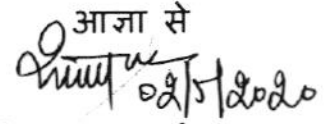 आज्ञा से
02/5/2020